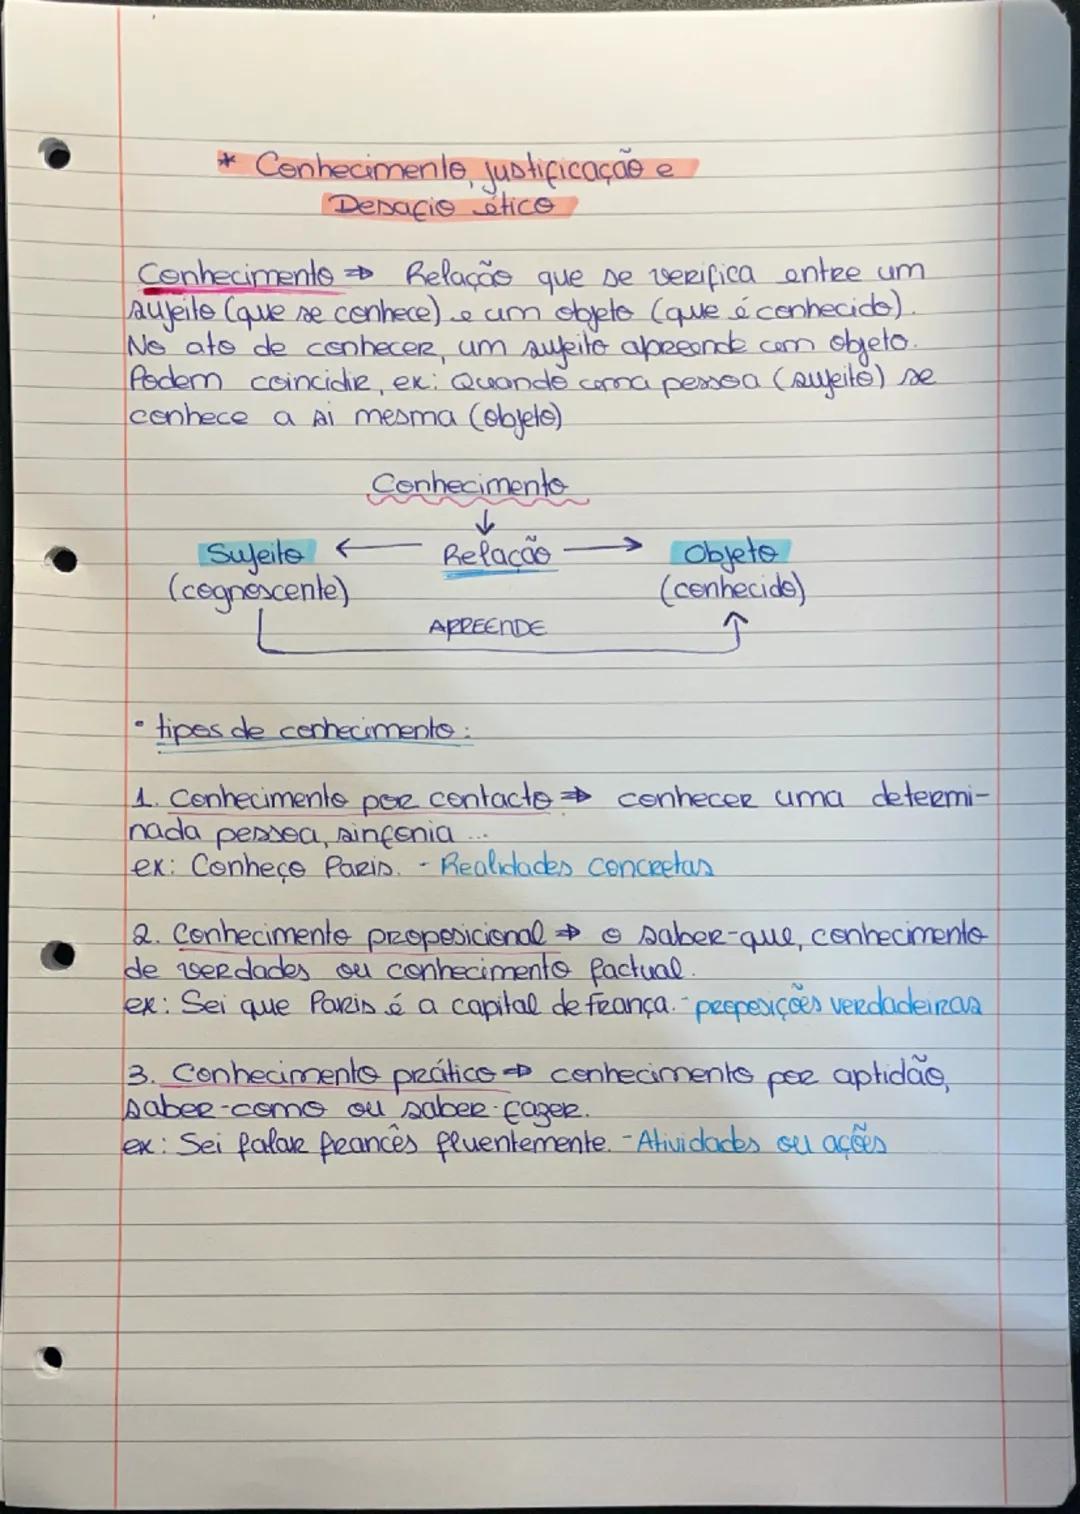 * Conhecimento, justificação e
Desafio ético
Conhecimento => Relação que se verifica entre um
sujeito (que se conhece) e um objeto (que é conhecido).
No ato de conhecer, um sujeito apreende um objeto.
Podem coincidir, ex: Quando uma pessoa (sujeito) se
conhece a si mesma (objeto)
Conhecimento
↓
Sujeito ← Relação → Objeto
(cognoscente) (conhecido)
APREENDE
• tipos de conhecimento:
1. Conhecimento por contacto => conhecer uma determi-
nada pessoa, sinfonia ...
ex: Conheço Paris. - Realidades concretas
2. Conhecimento proposicional => o saber-que, conhecimento
de verdades ou conhecimento factual.
ex: Sei que Paris é a capital de França. - proposições verdadeiras
3. Conhecimento prático => conhecimento por aptidão,
saber-como ou saber-fazer.
ex: Sei falar francês fluentemente. - Atividades ou ações